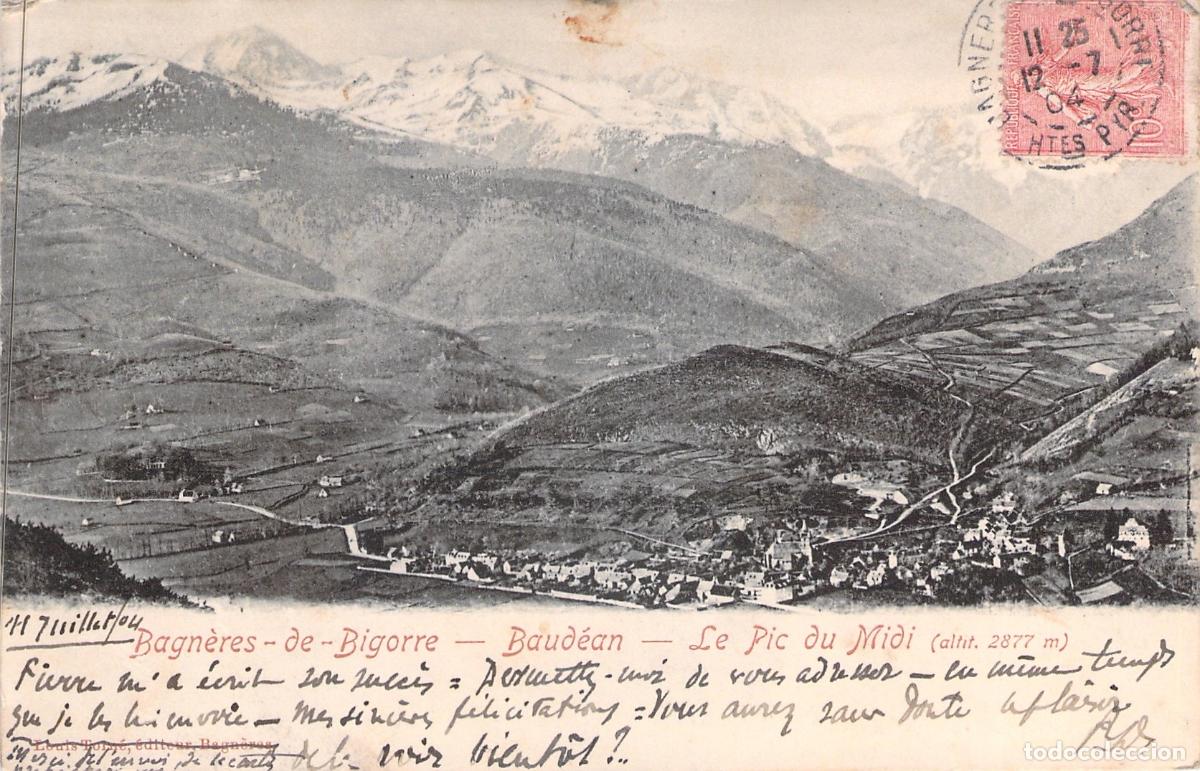 BAGNÈRES
BIGORRE
11 25
12 -7
04
HTES PYR
RÉPUBLIQUE FRANÇAISE
10
11 Juillet/04
Bagnères-de-Bigorre — Baudéan — Le Pic du Midi (altit. 2877 m)
Pierre m'a écrit son succès = Permettez-moi de vous adresser — en même temps
que je les lui envoie — mes sincères félicitations = Vous aurez sans doute le plaisir
de le voir bientôt?
Louis Tomé, éditeur, Bagnères
Merci de l'envoi de
todocoleccion